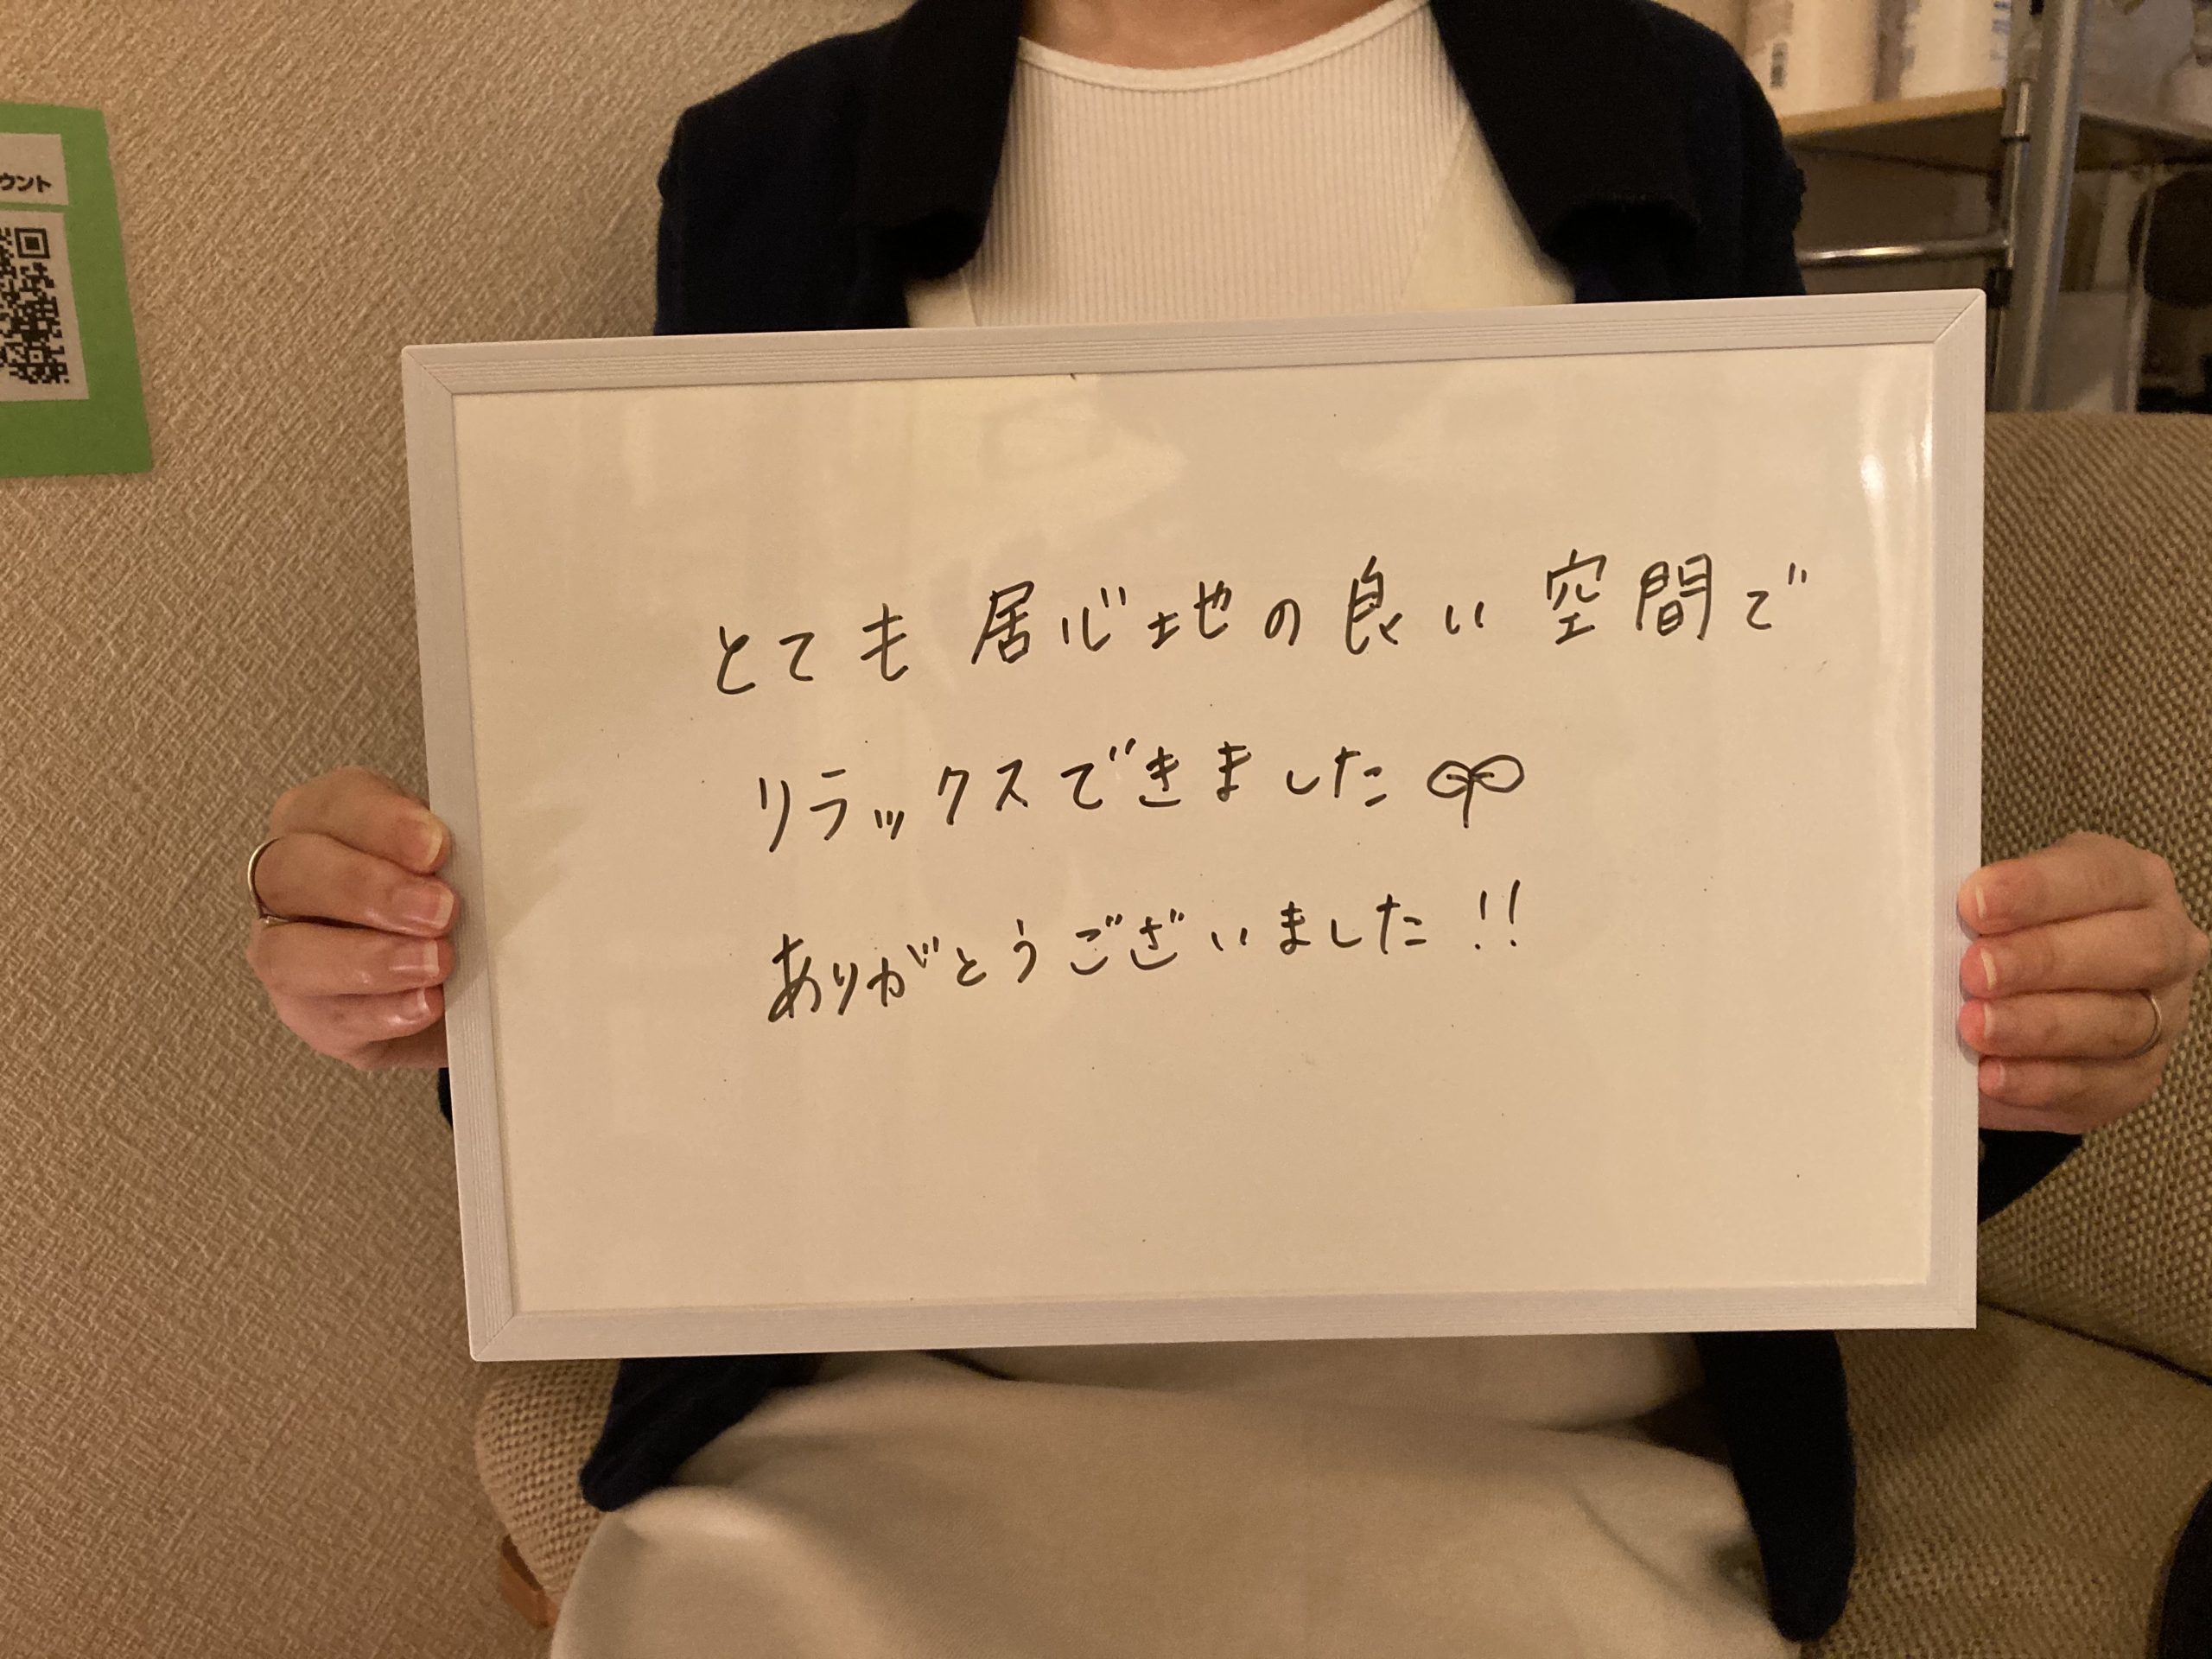 ウント
とても居心地の良い空間で
リラックスできました
ありがとうございました!!